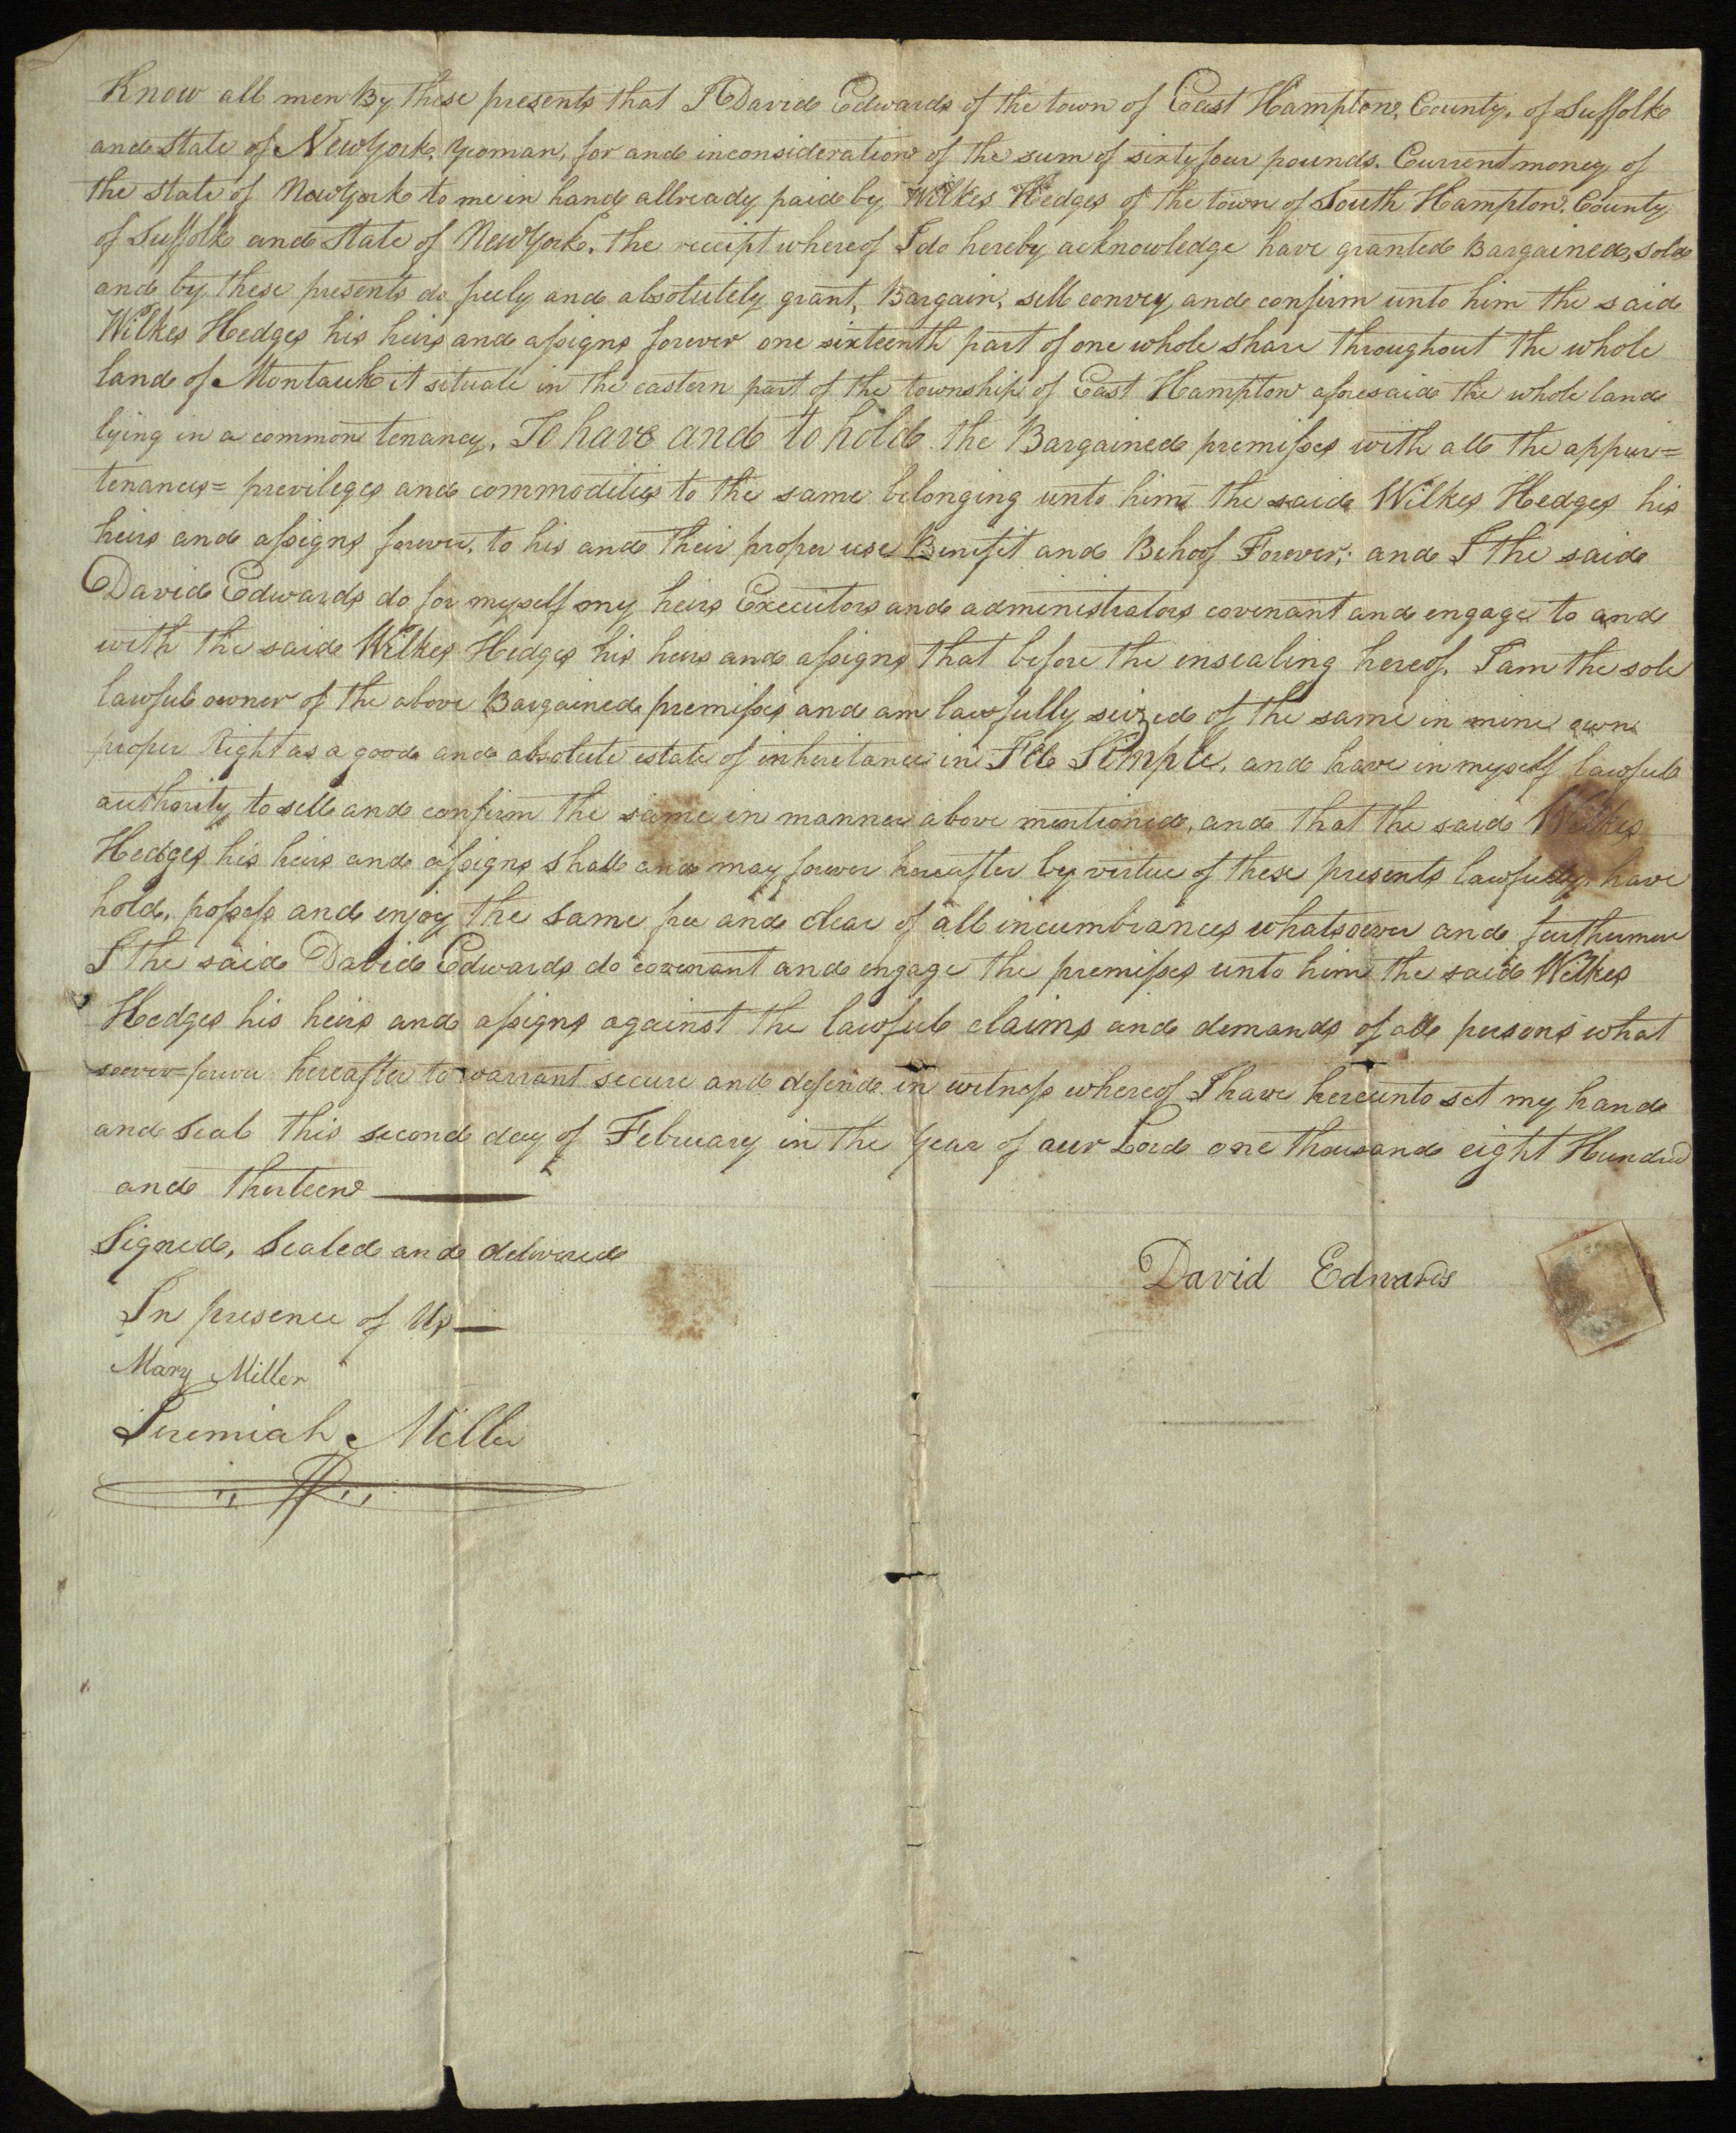 Know all men By these presents that I David Edwards of the town of East Hampton, County, of Suffolk
and State of New York, yeoman, for and in consideration of the sum of sixty four pounds. Current money of
the state of New York to me in hand allready paid by Wilkes Hedges of the town of South Hampton, County
of Suffolk and State of New York, the receipt whereof I do hereby acknowledge have granted Bargained, sold
and by these presents do freely and absolutely grant, Bargain, sell convey and confirm unto him the said
Wilkes Hedges his heirs and assigns forever one sixteenth part of one whole share throughout the whole
land of Montauk it situate in the eastern part of the township of East Hampton aforesaid the whole land
lying in a common tenancy, To have and to hold the Bargained premisses with all the appur=
tenances= previleges and commodities to the same belonging unto him the said Wilkes Hedges his
heirs and assigns forever, to his and their proper use Benifit and Behoof Forever; and I the said
David Edwards do for myself my heirs Executors and administrators covenant and engage to and
with the said Wilkes Hedges his heirs and assigns that before the ensealing hereof, I am the sole
lawful owner of the above Bargained premisses and am lawfully seized of the same in mine own
proper Right as a good and absolute estate of inheritance in Fee Simple, and have in myself lawful
authority to sell and confirm the same in manner above mentioned, and that the said Wilkes
Hedges his heirs and assigns shall and may forever hereafter by virtue of these presents lawfully have
hold, possess and enjoy the same free and clear of all incumbrances whatsoever and furthermore
I the said David Edwards do covenant and engage the premisses unto him the said Wilkes
Hedges his heirs and assigns against the lawful claims and demands of all persons what
soever=forever hereafter to warrant secure and defend in witness whereof I have hereunto set my hand
and seal this second day of February in the year of our Lord one thousand eight Hundred
and thirteen
Signed, Sealed and delivered
In presence of Us
David Edwards
Mary Miller
Jeremiah Miller